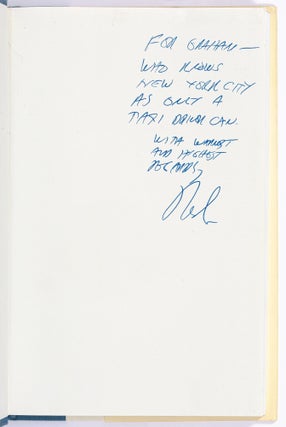 FOR GRAHAM —
WHO KNOWS
NEW YORK CITY
AS ONLY A
TAXI DRIVER CAN.
WITH WARMEST
AND HIGHEST
REGARDS,